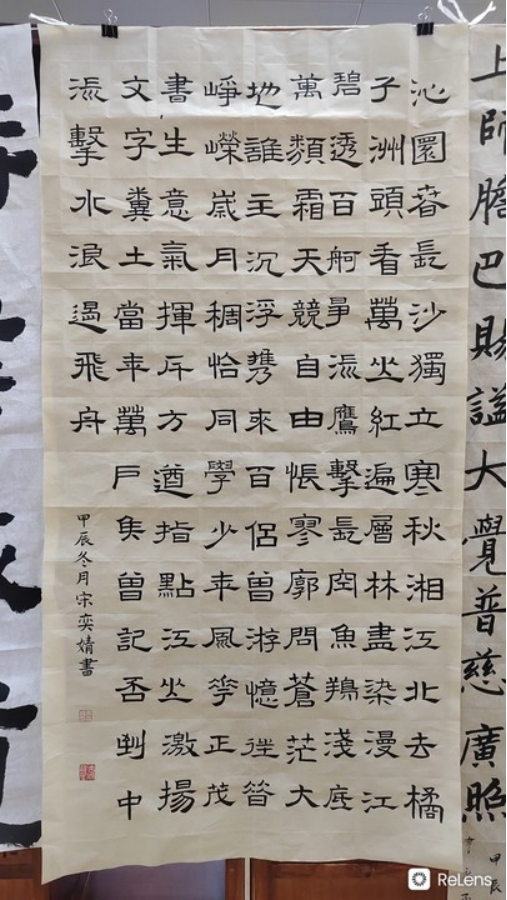 上師膽巴賜謚大覺普慈廣照
甲辰
沁園春長沙獨立寒秋湘江北去橘
子洲頭看萬山紅遍層林盡染漫江
碧透百舸爭流鷹擊長空魚翔淺底
萬類霜天競自由悵寥廓問蒼茫大
地誰主沉浮攜來百侶曾游憶往昔
崢嶸歲月稠恰同學少年風華正茂
書生意氣揮斥方遒指點江山激揚
文字糞土當年萬戶侯曾記否到中
流擊水浪遏飛舟
甲辰冬月宋奕婧書
ReLens